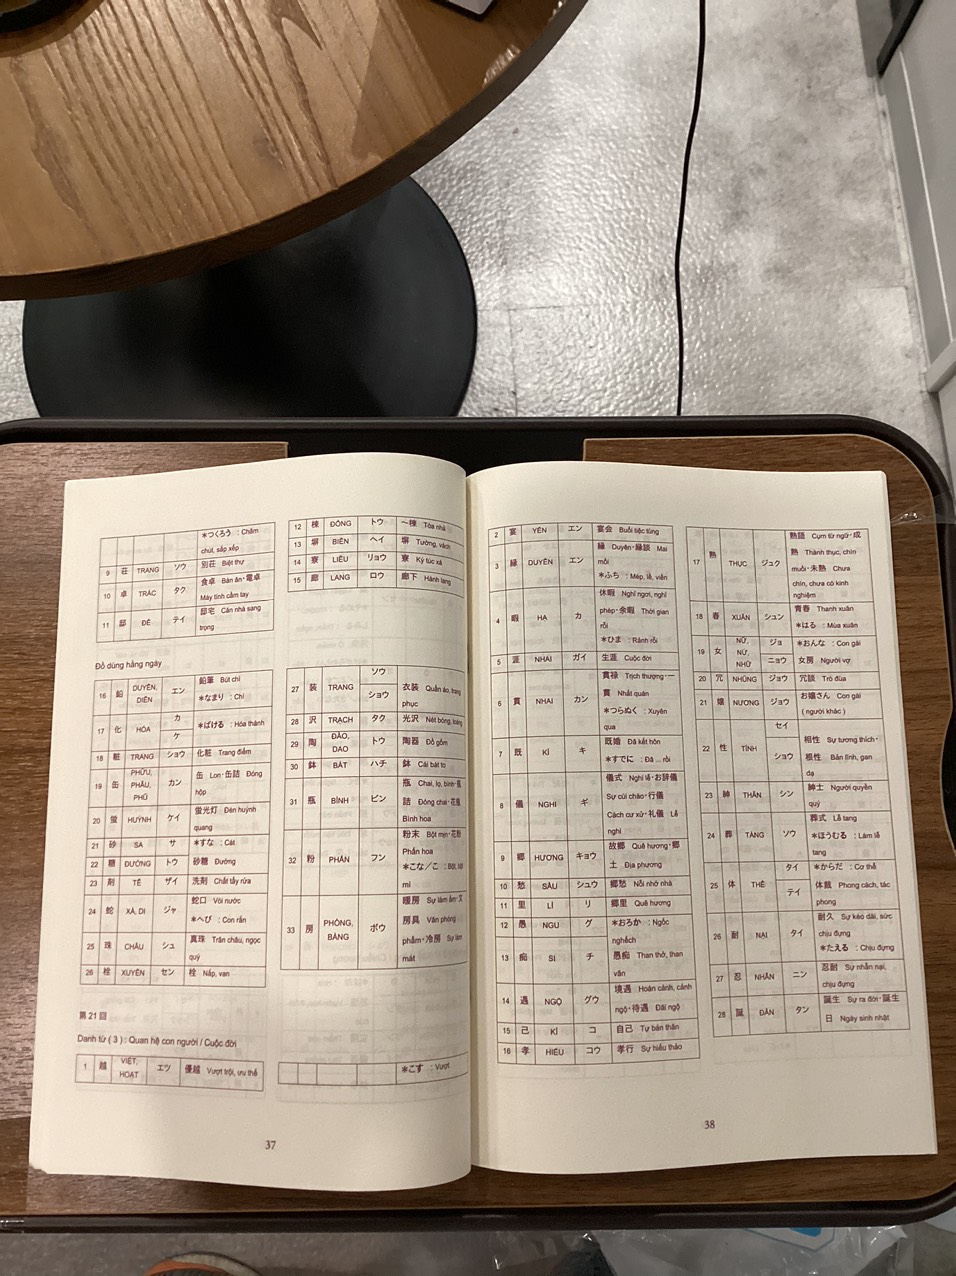 *つくろう : Chăm
chút, sắp xếp
9 荘 TRANG ソウ 別荘 Biệt thự
10 卓 TRÁC タク 食卓 Bàn ăn・電卓
Máy tính cầm tay
11 邸 ĐỂ テイ 邸宅 Căn nhà sang
trọng
12 棟 ĐỐNG トウ 〜棟 Tòa nhà
13 塀 BIÊN ヘイ 塀 Tường, vách
14 寮 LIÊU リョウ 寮 Ký túc xá
15 廊 LANG ロウ 廊下 Hành lang
Đồ dùng hằng ngày
16 鉛 DUYÊN, DIÊN エン 鉛筆 Bút chì
*なまり : Chì
17 化 HÓA カ
ケ *ばける : Hóa thành
18 粧 TRANG ショウ 化粧 Trang điểm
19 缶 PHỮU, PHẪU, PHŨ カン 缶 Lon・缶詰 Đóng
hộp
20 蛍 HUỲNH ケイ 蛍光灯 Đèn huỳnh
quang
21 砂 SA サ *すな : Cát
22 糖 ĐƯỜNG トウ 砂糖 Đường
23 剤 TỄ ザイ 洗剤 Chất tẩy rửa
24 蛇 XÀ, DI ジャ 蛇口 Vòi nước
*へび : Con rắn
25 珠 CHÂU シュ 真珠 Trân châu, ngọc
quý
26 栓 XUYÊN セン 栓 Nắp, van
27 装 TRANG ソウ
ショウ 衣装 Quần áo, trang
phục
28 沢 TRẠCH タク 光沢 Nét bóng, loáng
29 陶 ĐÀO, DAO トウ 陶器 Đồ gốm
30 鉢 BÁT ハチ 鉢 Cái bát to
31 瓶 BÌNH ビン 瓶 Chai, lọ, bình・瓶
詰 Đóng chai・花瓶
Bình hoa
32 粉 PHẤN フン 粉末 Bột mịn・花粉
Phấn hoa
*こな／こ : Bột, bột
mì
33 房 PHÒNG, BÀNG ボウ 暖房 Sự làm ấm・文
房具 Văn phòng
phẩm・冷房 Sự làm
mát
第 21 回
Danh từ ( 3 ) : Quan hệ con người / Cuộc đời
1 越 VIỆT, HOẠT エツ 優越 Vượt trội, ưu thế
*こす : Vượt
37
2 宴 YẾN エン 宴会 Buổi tiệc tùng
3 縁 DUYÊN エン 縁 Duyên・縁談 Mai
mối
*ふち : Mép, lề, viền
4 暇 HẠ カ 休暇 Nghỉ ngơi, nghỉ
phép・余暇 Thời gian
rỗi
*ひま : Rảnh rỗi
5 涯 NHAI ガイ 生涯 Cuộc đời
6 貫 NHAI カン 貫禄 Tịch thượng・一
貫 Nhất quán
*つらぬく : Xuyên
qua
7 既 KÍ キ 既婚 Đã kết hôn
*すでに : Đã ... rồi
8 儀 NGHI ギ 儀式 Nghi lễ・お辞儀
Sự cúi chào・行儀
Cách cư xử・礼儀 Lễ
nghi
9 郷 HƯƠNG キョウ 故郷 Quê hương・郷
土 Địa phương
10 愁 SẦU シュウ 郷愁 Nỗi nhớ nhà
11 里 LÍ リ 郷里 Quê hương
12 愚 NGU グ *おろか : Ngốc
nghếch
13 痴 SI チ 愚痴 Than thở, than
vãn
14 遇 NGỘ グウ 境遇 Hoàn cảnh, cảnh
ngộ・待遇 Đãi ngộ
15 己 KỈ コ 自己 Tự bản thân
16 孝 HIẾU コウ 孝行 Sự hiếu thảo
17 熟 THỤC ジュク 熟語 Cụm từ ngữ・成
熟 Thành thục, chín
muồi・未熟 Chưa
chín, chưa có kinh
nghiệm
18 春 XUÂN シュン 青春 Thanh xuân
*はる : Mùa xuân
19 女 NỮ, NỨ, NHỮ ジョ *おんな : Con gái
ニョウ 女房 Người vợ
20 冗 NHŨNG ジョウ 冗談 Trò đùa
21 嬢 NƯƠNG ジョウ お嬢さん Con gái
( người khác )
22 性 TÍNH セイ
ショウ 相性 Sự tương thích・
根性 Bản lĩnh, gan
dạ
23 紳 THÂN シン 紳士 Người quyền
quý
24 葬 TÁNG ソウ 葬式 Lễ tang
*ほうむる : Làm lễ
tang
25 体 THỂ タイ *からだ : Cơ thể
テイ 体裁 Phong cách, tác
phong
26 耐 NẠI タイ 耐久 Sự kéo dài, sức
chịu đựng
*たえる : Chịu đựng
27 忍 NHẪN ニン 忍耐 Sự nhẫn nại,
chịu đựng
28 誕 ĐẢN タン 誕生 Sự ra đời・誕生
日 Ngày sinh nhật
38